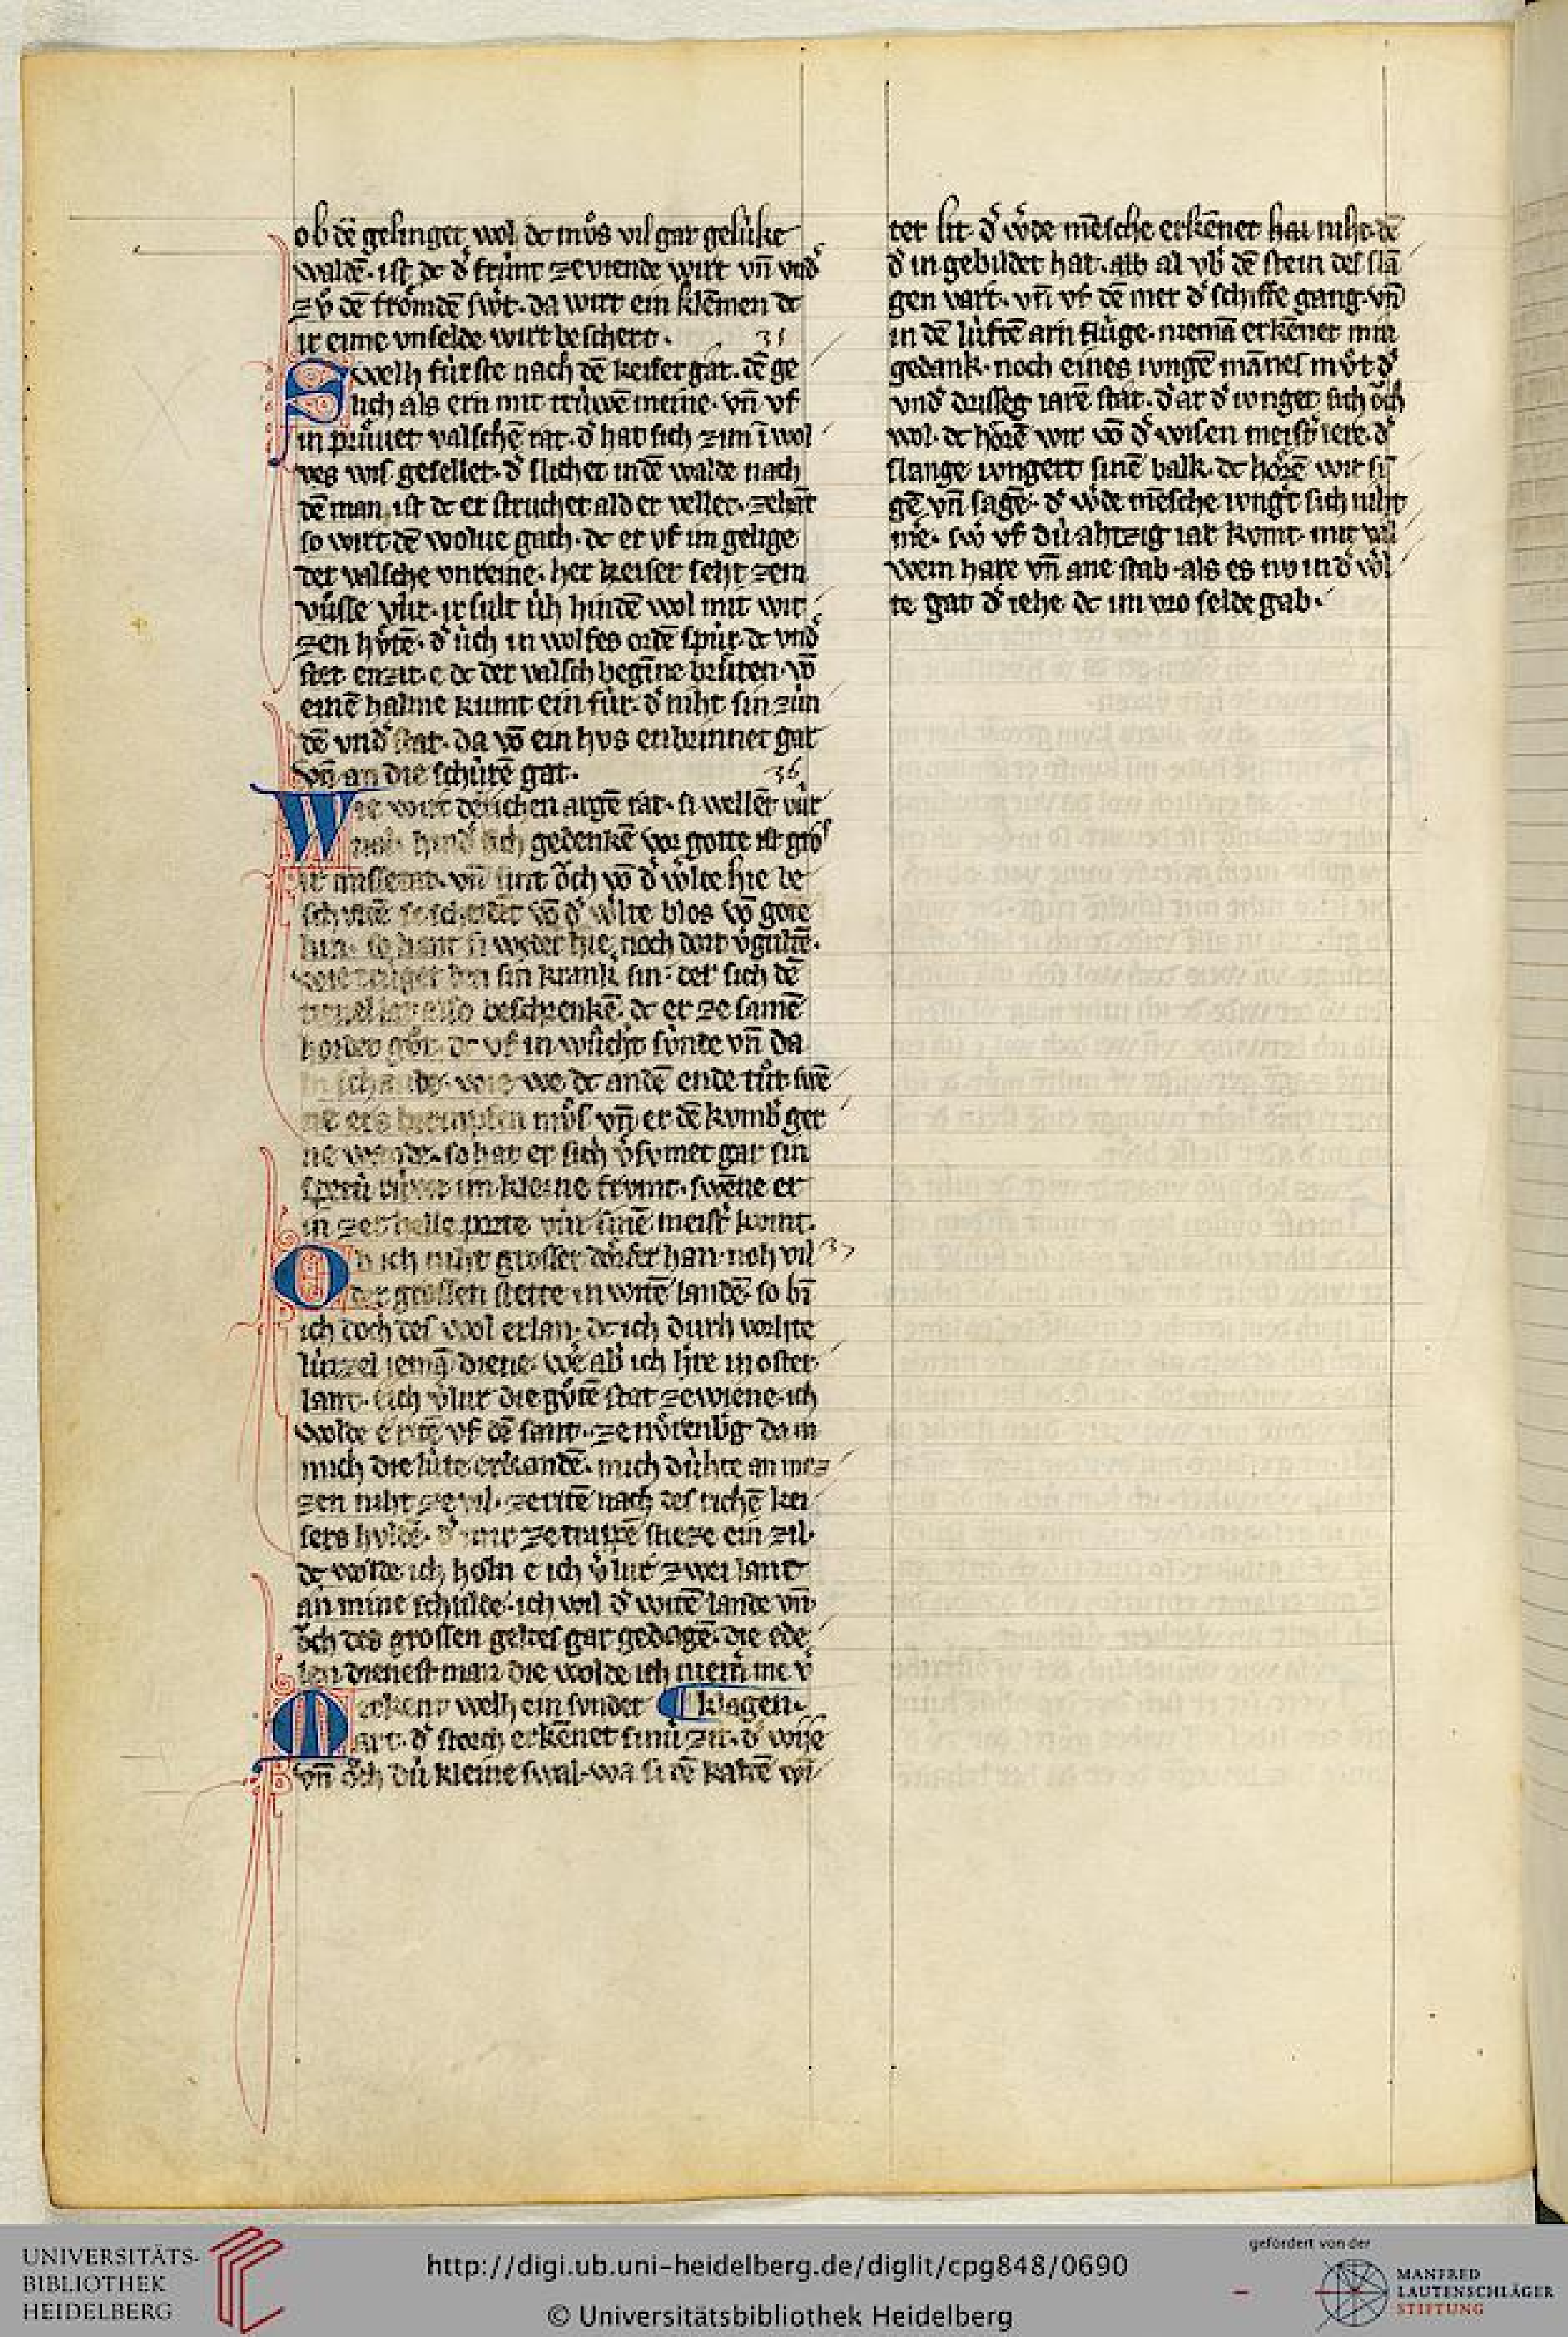 ob dē gelinget wol dc mv̊s vil gar gelúke
waldē. ist dc d͛ frúnt ze viende wirt vn̄ vnd͛
zv̊ dē frömdē swͦt. da wirt ein klēmen dc
ir eime vnselde wirt beschert. 35
Swelh fúrste nach dē keiser gat. dē ge
lich als ern mit trúwē meine. vn̄ vf
in průuet valschē rat. d͛ hat sich zim ī wol
ves wis gesellet. d͛ slichet in dē walde nach
dē man. ist dc er struchet ald er vellet. zehāt
so wirt dē wolue gach. dc er vf im gelige
der valsche vnreine. her keiser seht zem
vúste vúr. ir sult úh hindē wol mit wit
zen hv̊tē. d͛ úch in wolfes ordē spúr. dc vnd͛
stet enzit. e dc der valsch begīne brůten. vō
einē halme kumt ein fúr. d͛ niht sin zún
dē vnd͛stat. da vō ein hvs enbrinnet gat
vn̄ an die schúrē gat. 36
Wie wirt der richen argē rat. si wellēt vúr
noh hind͛ sich gedenkē vor gotte ist gros
ir missetat. vn̄ sint o̊ch vō d͛ wͤlte hie be
scholtē so scheidēt vō d͛ wͤlte blos vō gote
hin. so hant si weder hie noch dort v͛gultē.
sin krank sin. der sich dē
tieuel lat also beschrenkē. dc er ze samē
hordes gůt. dc vf in wůchs súnde vn̄ da
bi schande. wie we dc andē ende tůt. swē
ne ers mv̊s vn̄ er dē kvmb͛ ger
ne wande. so hat er sich v͛svmet gar sin
spetú rúwe im kleine frvmt. swēne er
in zer helle porte vúr sinē meist͛ kvmt.
Ob ich niht grosser dörfer han. noh vil 37
der grossen stette in witē landē. so bī
ich doch des wol erlan. dc ich durh vorhte
lúzzel iemā diene. we ab͛ ich hͤre in oster
lant. e ich v͛lur die gůtē stat ze wiene. ich
wolde e ritē vf dē sant. ze nůrenb͛g da in
mich die lúte erkandē. mich dúhte an mez
zen niht ze vil. ze ritē nach des richē kei
sers huldē. d͛ mir ze trippē stieze ein zil.
dc wolde ich holn e ich v͛lur zwei lant
an mine schulde. ich wil d͛ witē lande vn̄
o̊ch des grossen geltes gar gedagē. die ede
len dienestman die wolde ich niem͛ me v͛
Merkent welh ein svnder ¶ klagen.
art. d͛ storch erkēnet sinú zit. d͛ wije
vn̄ o̊ch dú kleine swal. wa si dē kaltē wī
ter lit. d͛ wͤde mēsche erkēnet hat niht. dē
d͛ in gebildet hat. alb al vb͛ dē stein des slā
gen vart. vn̄ vf dē mer d͛ schiffe gang. vn̄
in dē lúftē arn flúge. niemā erkēnet min
gedank. noch eines iungē mānes mv̊t d͛
vnd͛ drisseg iarē stat. d͛ ar d͛ iunget sich o̊ch
wol. dc hörē wir vō d͛ wisen meist͛ lere. d͛
slange iungert sinē balk. dc hörē wir sī
gē vn̄ sagē. d͛ wͤde mēsche iungt sich niht
me. swͦ vf dú ahtzig iar kvmt. mit val
wem hare vn̄ ane stab. als es nv in d͛ wͤl
te gat d͛ iehe dc im vro selde gab.
UNIVERSITÄTS-
BIBLIOTHEK
HEIDELBERG
http://digi.ub.uni-heidelberg.de/diglit/cpg848/0690
© Universitätsbibliothek Heidelberg
gefördert von der
MANFRED
LAUTENSCHLÄGER
STIFTUNG